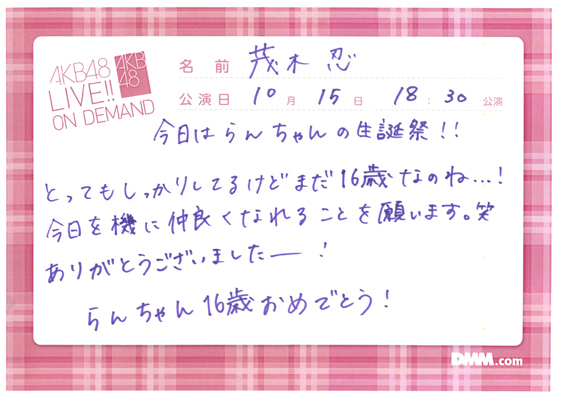 AKB48
LIVE!!
ON DEMAND
AKB
48
名前 茂木 忍
公演日 10月 15日 18:30 公演
今日はらんちゃんの生誕祭!!
とってもしっかりしてるけどまだ16歳なのね...!
今日を機に仲良くなれることを願います。笑
ありがとうございましたー!
らんちゃん16歳おめでとう!
DMM.com